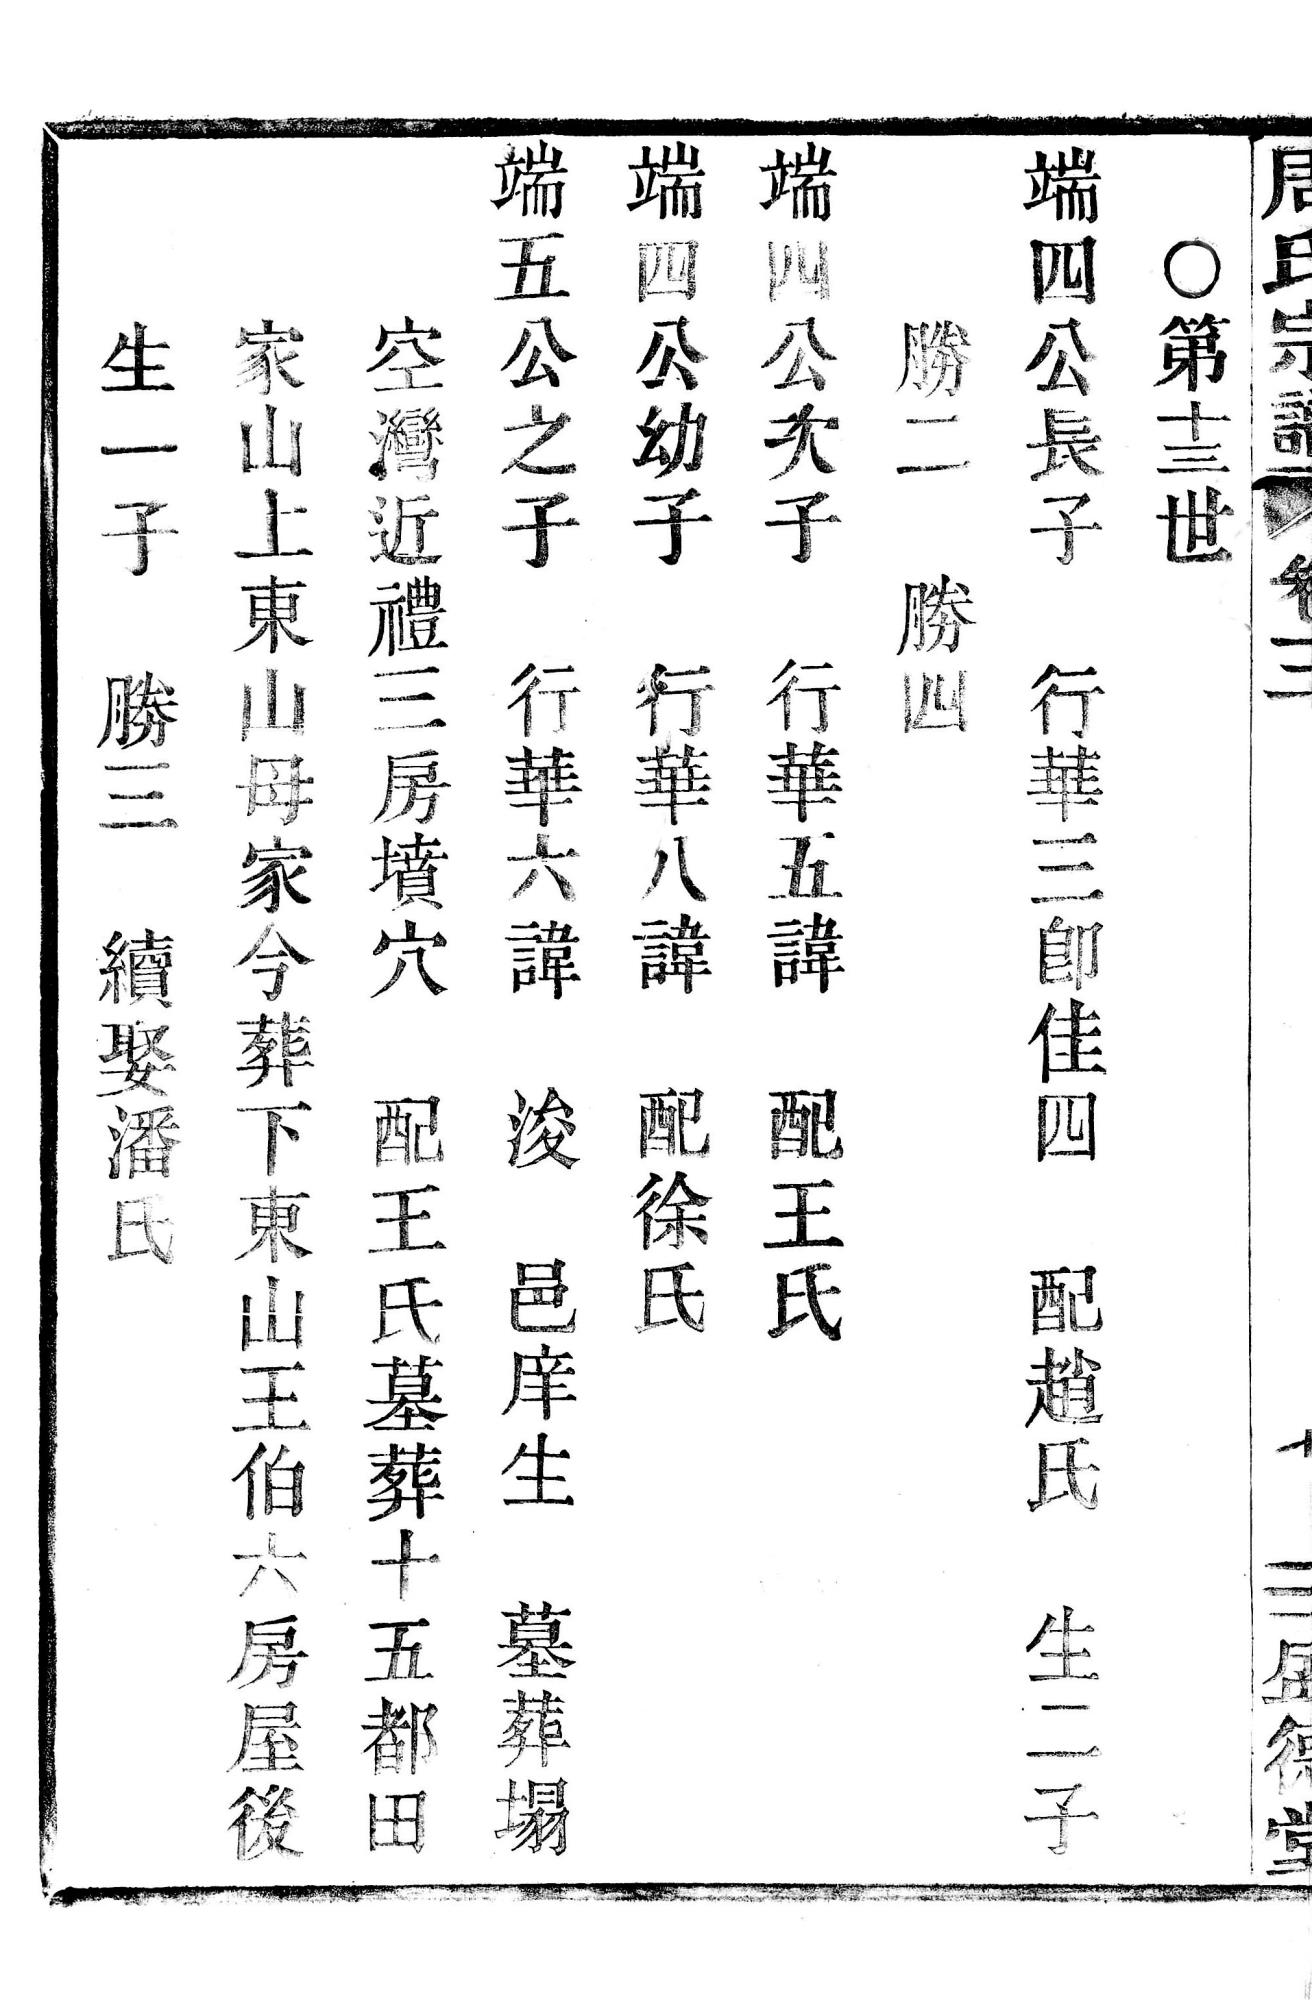 周氏宗譜 卷三 十 三 盛德堂
○第十三世
端四公長子 行華三卽佳四 配趙氏 生二子
勝二 勝四
端四公次子 行華五諱 配王氏
端四公幼子 行華八諱 配徐氏
端五公之子 行華六諱 浚 邑庠生 墓葬塌
空灣近禮三房墳穴 配王氏墓葬十五都田
家山上東山母家今葬下東山王伯六房屋後
生一子 勝三 續娶潘氏